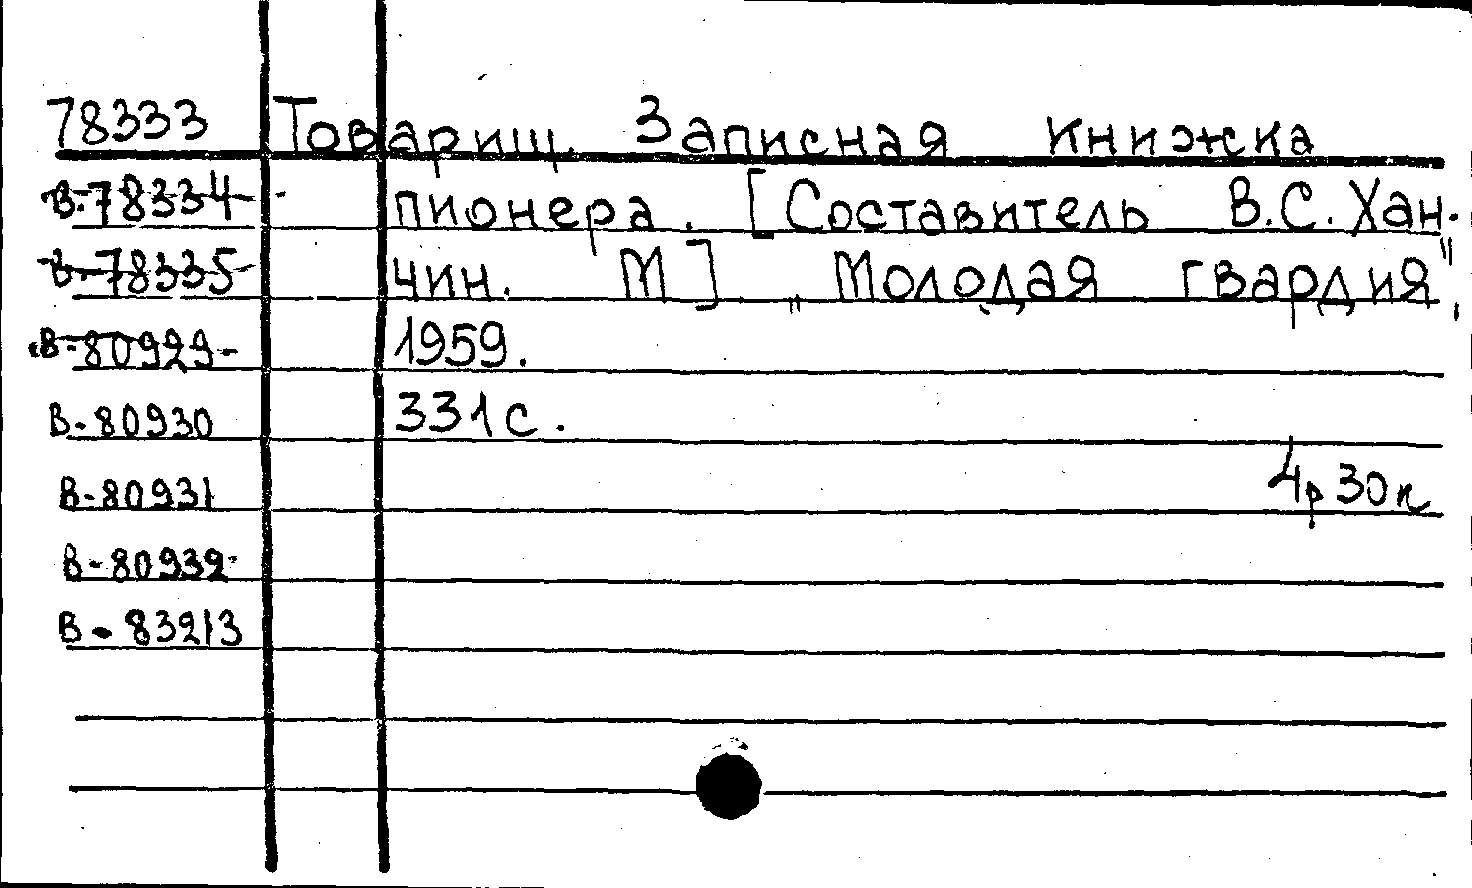 78333 Товарищ. Записная книжка
В-78334 пионера. [Составитель В.С. Хан-
В-78335 чин. М] „Молодая гвардия",
В-80929 1959.
В-80930 331 с.
В-80931 4р 30к
В-80932
В-83213